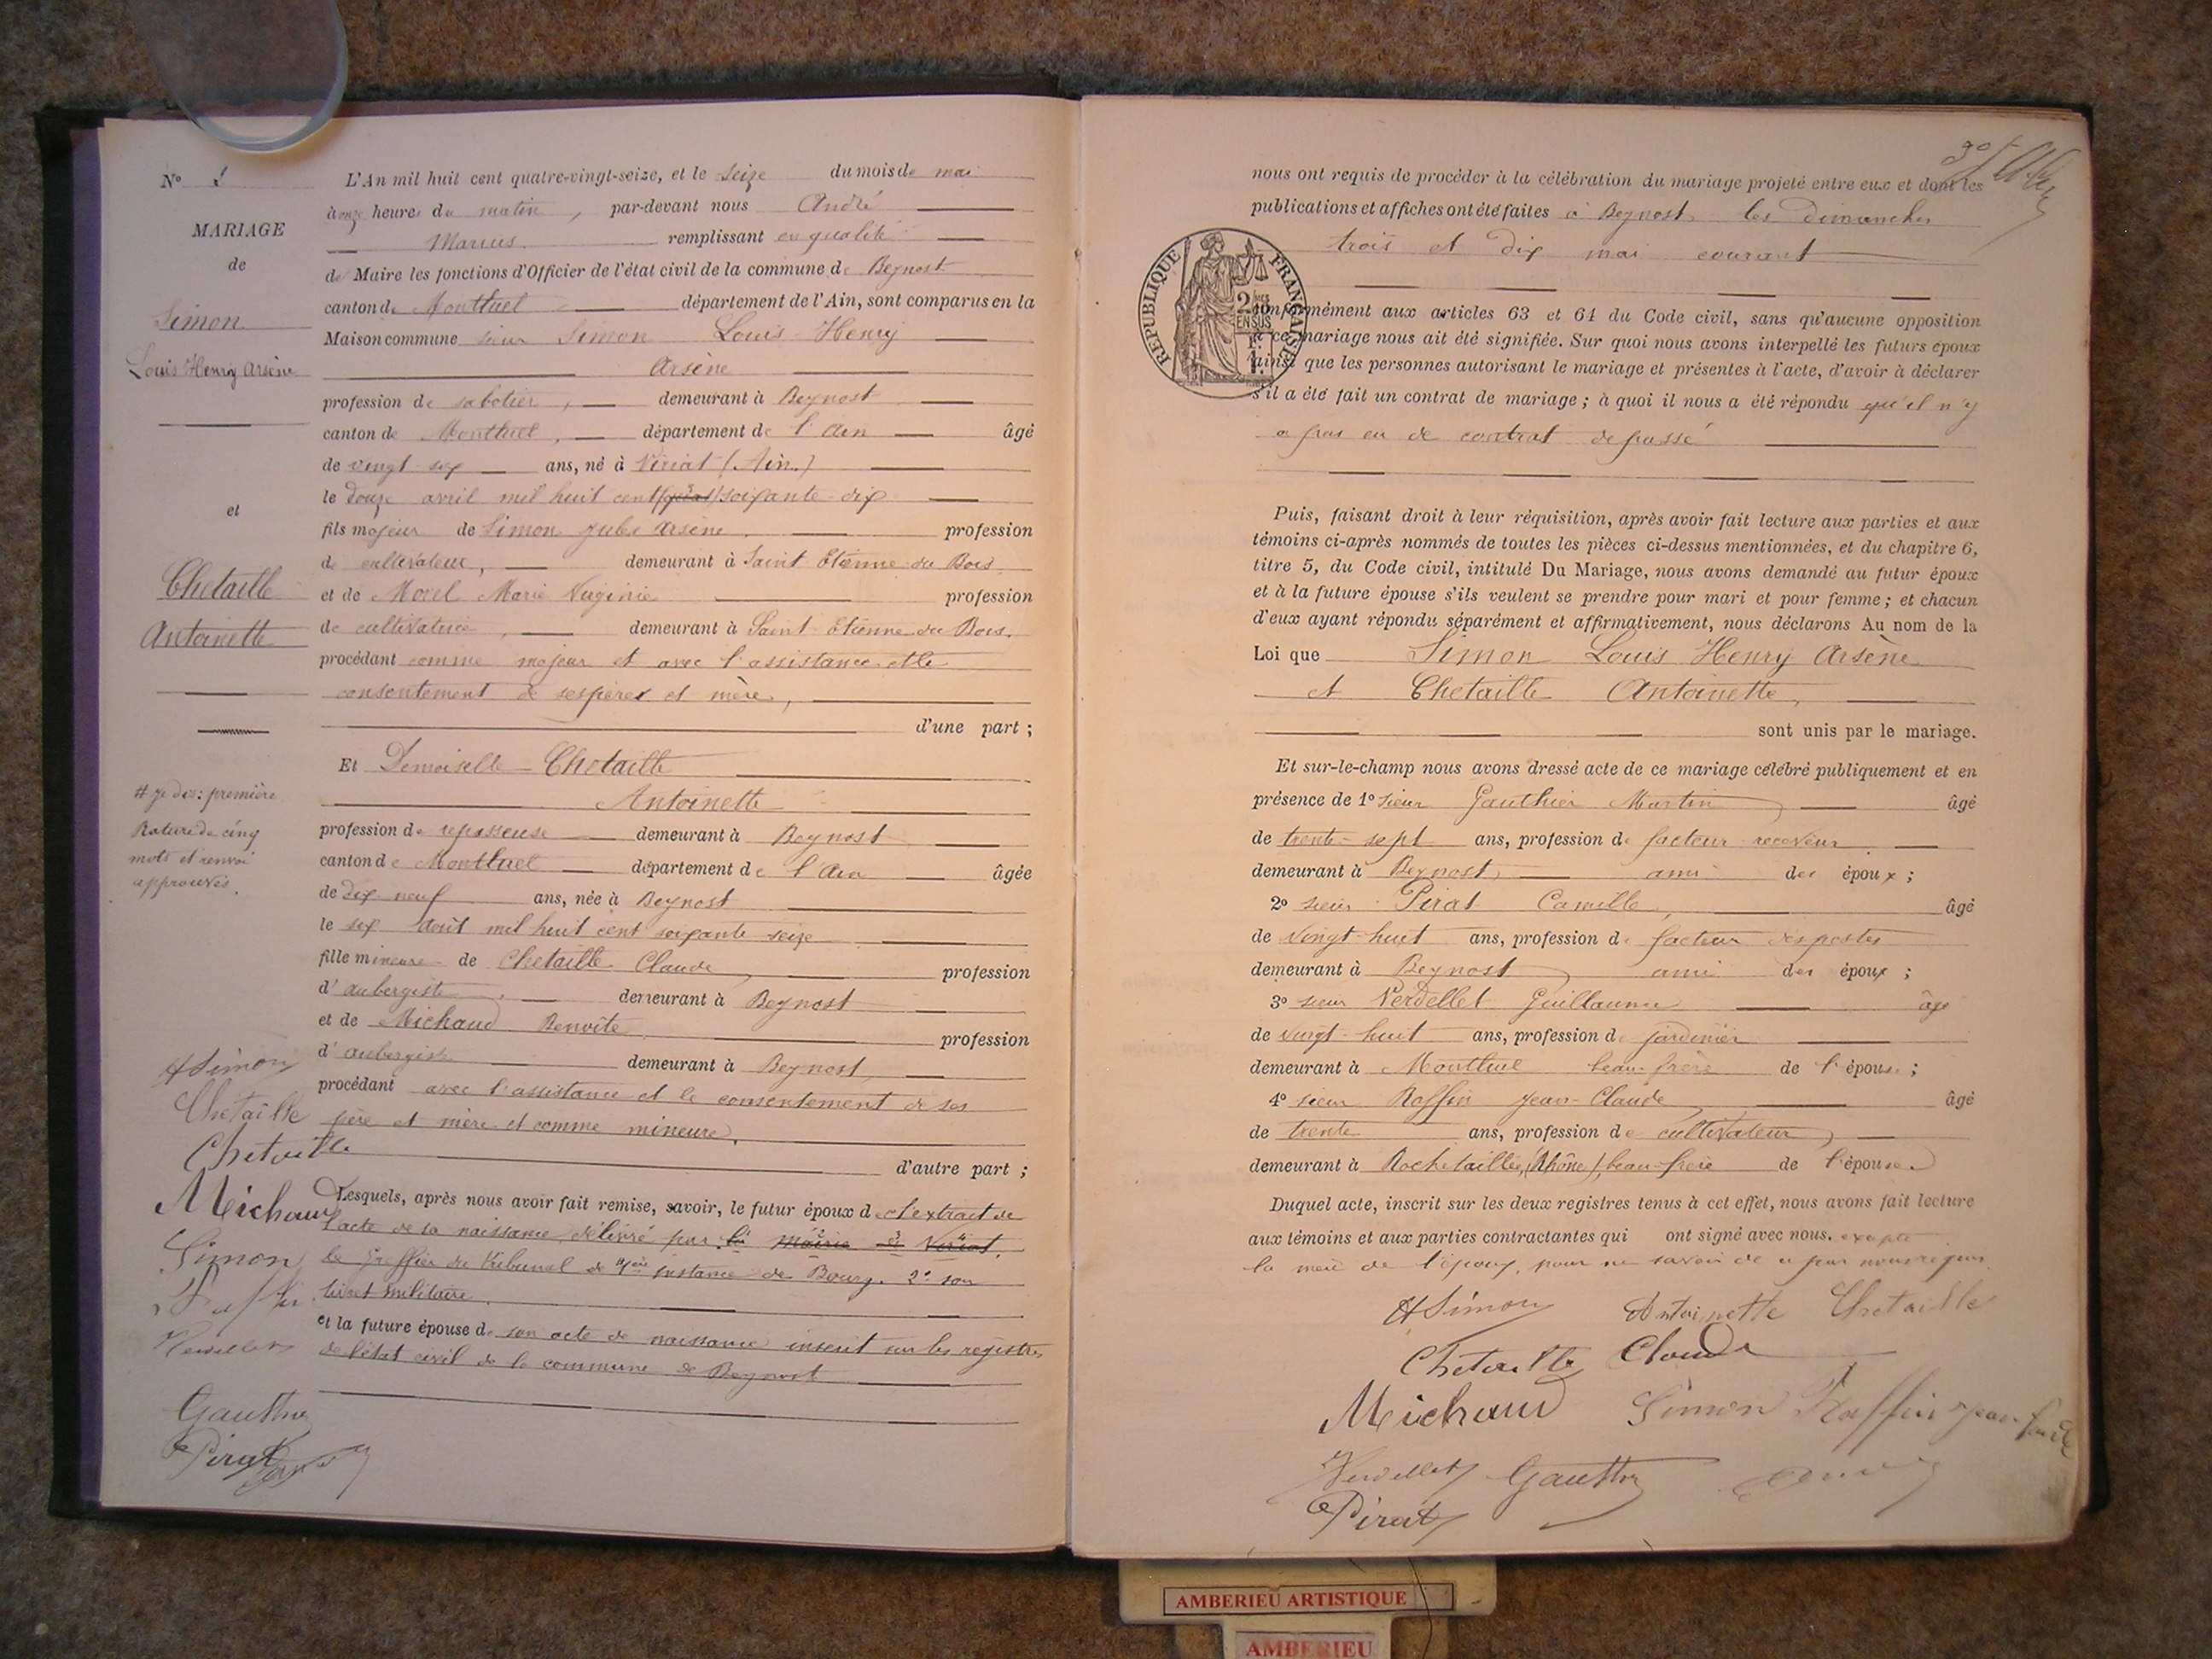 N° 2
MARIAGE
de
Simon
Louis Henry Arsène
et
Chetaille
Antoinette
L'An mil huit cent quatre-vingt-seize, et le seize du mois de mai
à onze heures du matin, par-devant nous André
Marius remplissant en qualité
de Maire les fonctions d'Officier de l'état civil de la commune de Beynost
canton de Montluel département de l'Ain, sont comparus en la
Maison commune sieur Simon Louis Henry
Arsène
profession de sabotier, demeurant à Beynost
canton de Montluel, département de l'Ain âgé
de vingt-six ans, né à Viriat (Ain.)
le douze avril mil huit cent soixante-dix
fils majeur de Simon Jules Arsène profession
de cultivateur, demeurant à Saint-Etienne-du Bois
et de Morel Marie Virginie profession
de cultivatrice, demeurant à Saint-Etienne-du Bois.
procédant comme majeur et avec l'assistance et le
consentement de ses père et mère,
d'une part ;
Et Demoiselle Chetaille
Antoinette
profession de repasseuse demeurant à Beynost
canton de Montluel département de l'Ain âgée
de dix-neuf ans, née à Beynost
le six août mil huit cent soixante seize
fille mineure de Chetaille Claude profession
d'aubergiste demeurant à Beynost
et de Michaud Benoîte profession
d'aubergiste demeurant à Beynost
procédant avec l'assistance et le consentement de ses
père et mère et comme mineure.
d'autre part ;
Lesquels, après nous avoir fait remise, savoir, le futur époux de l'extrait de
l'acte de sa naissance délivré par la Mairie de Viriat.
le Greffier du tribunal de 1ère instance de Bourg. 2° son
livret militaire.
et la future épouse de son acte de naissance inscrit sur les registres
de l'état civil de la commune de Beynost
première
Rature de cinq
mots et renvoi
approuvés.
H Simon
Chetaille
Chetaille
Michaud
Simon
Raffin
Verdellet
Gauthier
Pirat
nous ont requis de procéder à la célébration du mariage projeté entre eux et dont les
publications et affiches ont été faites à Beynost les dimanches
trois et dix mai courant
RÉPUBLIQUE FRANÇAISE
conformément aux articles 63 et 64 du Code civil, sans qu'aucune opposition
à ce mariage nous ait été signifiée. Sur quoi nous avons interpellé les futurs époux
ainsi que les personnes autorisant le mariage et présentes à l'acte, d'avoir à déclarer
s'il a été fait un contrat de mariage ; à quoi il nous a été répondu qu'il n'y
a pas eu de contrat de passé
Puis, faisant droit à leur réquisition, après avoir fait lecture aux parties et aux
témoins ci-après nommés de toutes les pièces ci-dessus mentionnées, et du chapitre 6,
titre 5, du Code civil, intitulé Du Mariage, nous avons demandé au futur époux
et à la future épouse s'ils veulent se prendre pour mari et pour femme ; et chacun
d'eux ayant répondu séparément et affirmativement, nous déclarons Au nom de la
Loi que Simon Louis Henry Arsène
et Chetaille Antoinette,
sont unis par le mariage.
Et sur-le-champ nous avons dressé acte de ce mariage célébré publiquement et en
présence de 1° sieur Gauthier Martin âgé
de trente-sept ans, profession de facteur receveur
demeurant à Beynost, ami des époux ;
2° sieur Pirat Camille, âgé
de vingt-huit ans, profession de facteur des postes
demeurant à Beynost ami des époux ;
3° sieur Verdellet Guillaume âgé
de vingt-huit ans, profession de jardinier
demeurant à Montluel beau-frère de l'épouse ;
4° sieur Raffin Jean-Claude âgé
de trente ans, profession de cultivateur,
demeurant à Rochetaillée, (Rhône), beau-frère de l'épouse.
Duquel acte, inscrit sur les deux registres tenus à cet effet, nous avons fait lecture
aux témoins et aux parties contractantes qui ont signé avec nous. excepté
la mère de l'époux, pour ne savoir de ce par nous requis
H Simon Antoinette Chetaille
Chetaille Claude
Michaud Simon Raffin Jean Claude
Verdellet Gauthier
Pirat
AMBERIEU ARTISTIQUE
AMBERIEU